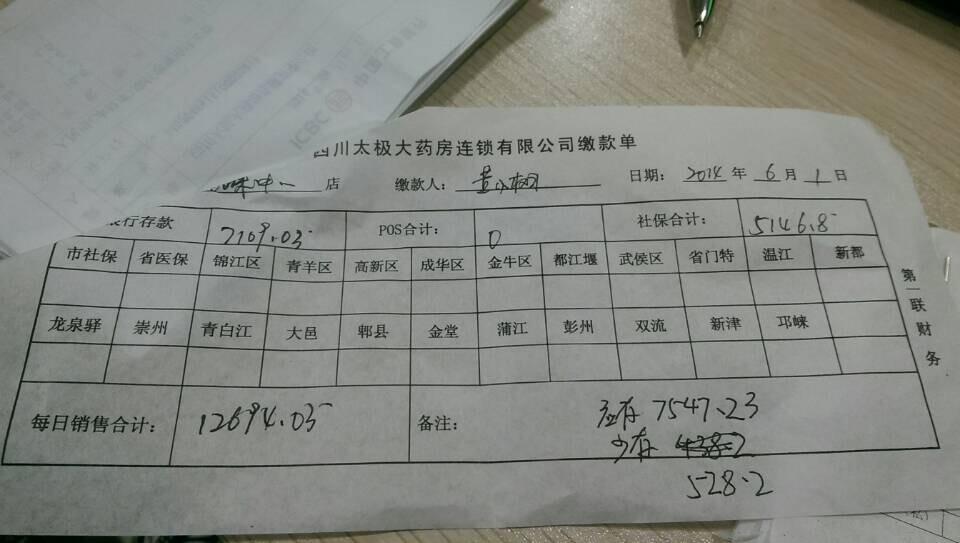 四川太极大药房连锁有限公司缴款单
店 缴款人: 日期: 2014 年 6 月 1 日
银行存款 7109.03 POS合计: 0 社保合计: 5146.8
市社保 省医保 锦江区 青羊区 高新区 成华区 金牛区 都江堰 武侯区 省门特 温江 新都
龙泉驿 崇州 青白江 大邑 郫县 金堂 蒲江 彭州 双流 新津 邛崃
每日销售合计: 12694.03 备注: 应存 7547.23
少存
528.2
第一联财务
ICBC